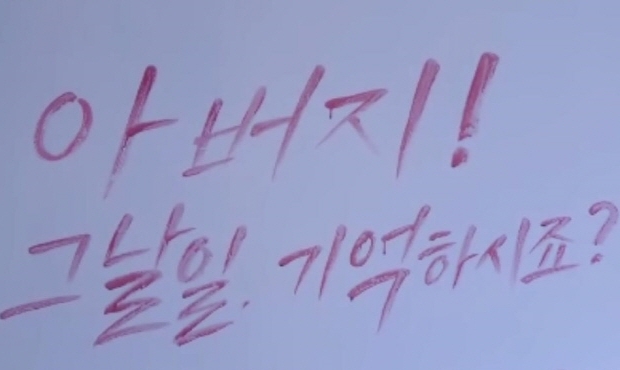 아버지!
그날일. 기억하시죠?